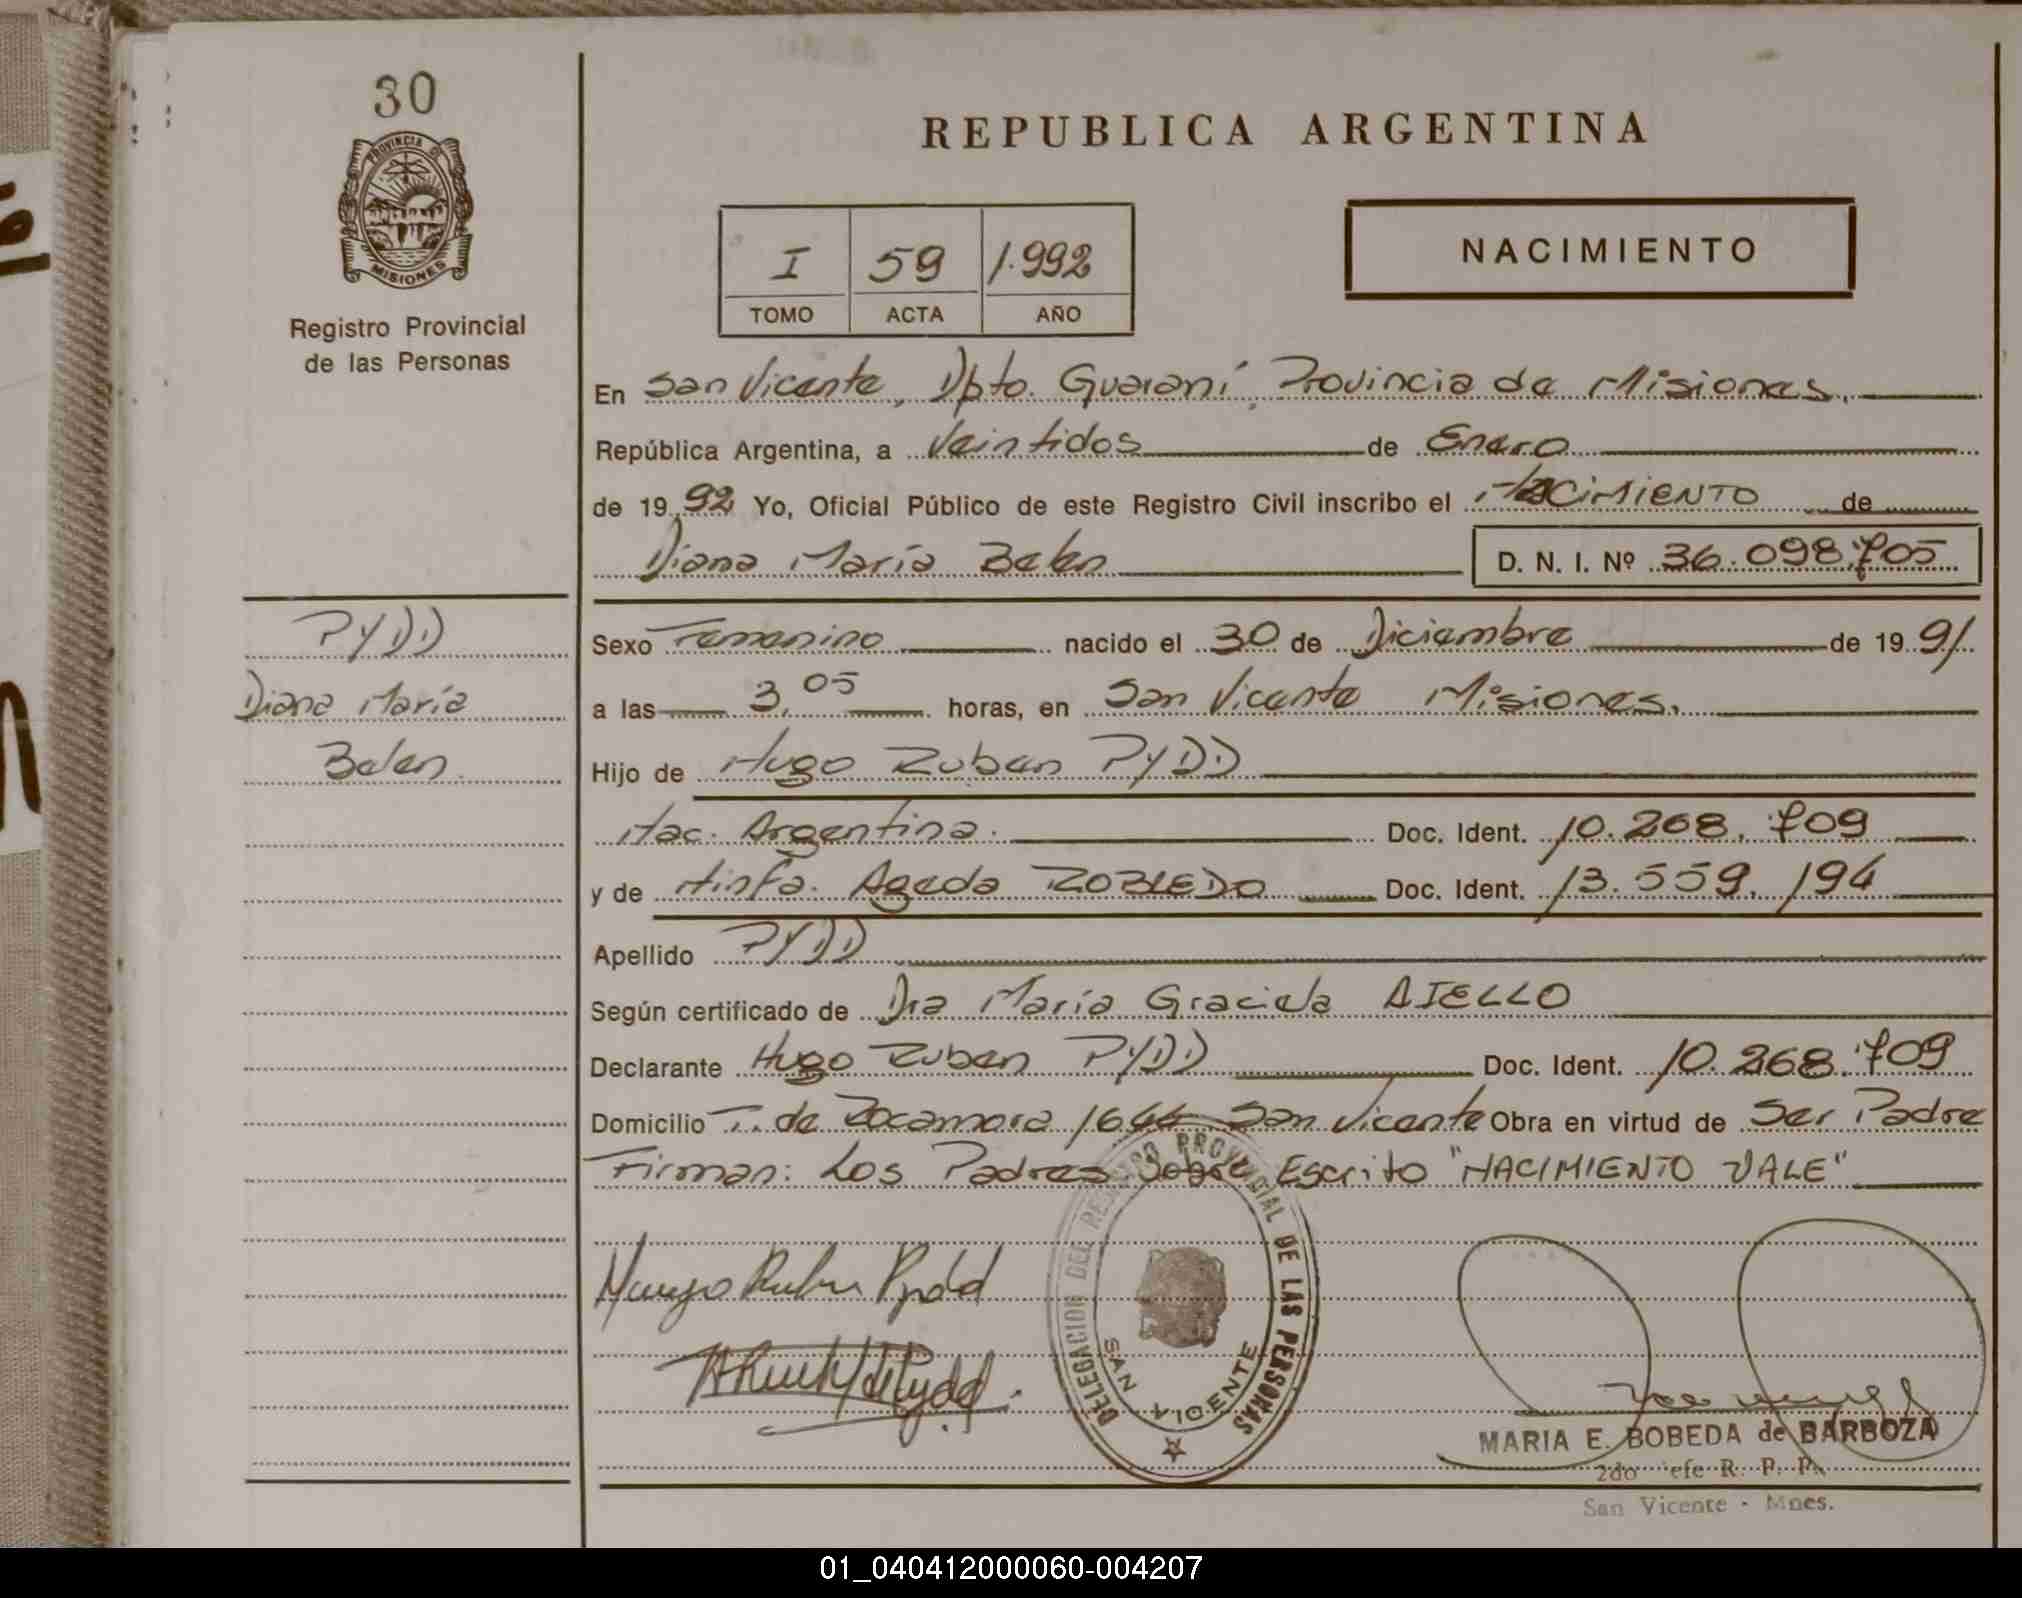 30
PROVINCIA DE
MISIONES
Registro Provincial
de las Personas
PYDD
Diana María
Belen.
REPUBLICA ARGENTINA
I 59 1.992
TOMO ACTA AÑO
NACIMIENTO
En San Vicente, Dpto. Guaraní, Provincia de Misiones,
República Argentina, a Veintidos de Enero
de 1992 Yo, Oficial Público de este Registro Civil inscribo el NACIMIENTO de
Diana María Belen D. N. I. Nº 36.098.705
Sexo Femenino nacido el 30 de Diciembre de 1991
a las 3,05 horas, en San Vicente Misiones.
Hijo de Hugo Ruben PYDD
Nac. Argentina. Doc. Ident. 10.268.709
y de Ninfa Ageda ROBLEDO Doc. Ident. 13.559.194
Apellido PYDD
Según certificado de Dra María Graciela AIELLO
Declarante Hugo Ruben PYDD Doc. Ident. 10.268.709
Domicilio T. de Rocamora 1644 San Vicente Obra en virtud de Ser Padre
Firman: Los Padres Sobre Escrito "NACIMIENTO VALE"
Hugo Ruben Pydd
DELEGACION DEL REGISTRO PROVINCIAL DE LAS PERSONAS
SAN VICENTE
MARIA E. BOBEDA de BARBOZA
2do Jefe R. P. P.
San Vicente - Mnes.
01_040412000060-004207